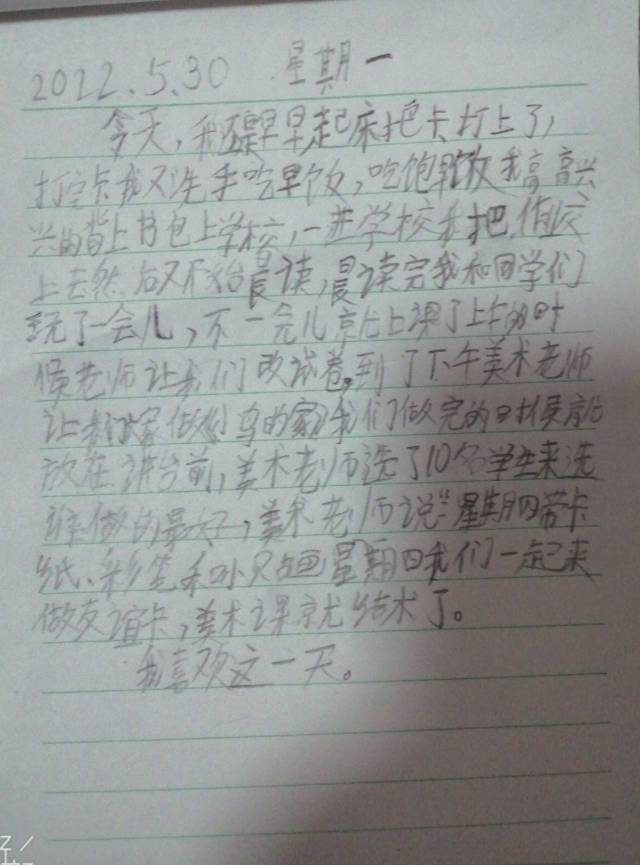 2022.5.30 星期一
今天,我很早早起床把卡打上了,
打完卡我又洗手吃早饭,吃饱早饭我高高兴
兴的背上书包上学校,一进学校我把作业
上去然后又开始晨读,晨读完我和同学们
玩了一会儿,不一会儿就上课了上午的时
候老师让我们改试卷。到了下午美术老师
让我们大家做《鸟的家》我们做完的时候就
放在讲台前,美术老师选了10名学生来选
谁做的最好,美术老师说"星期四带卡
纸、彩笔和小尺画星期四我们一起来
做友谊卡,美术课就结术了。
我喜欢这一天。